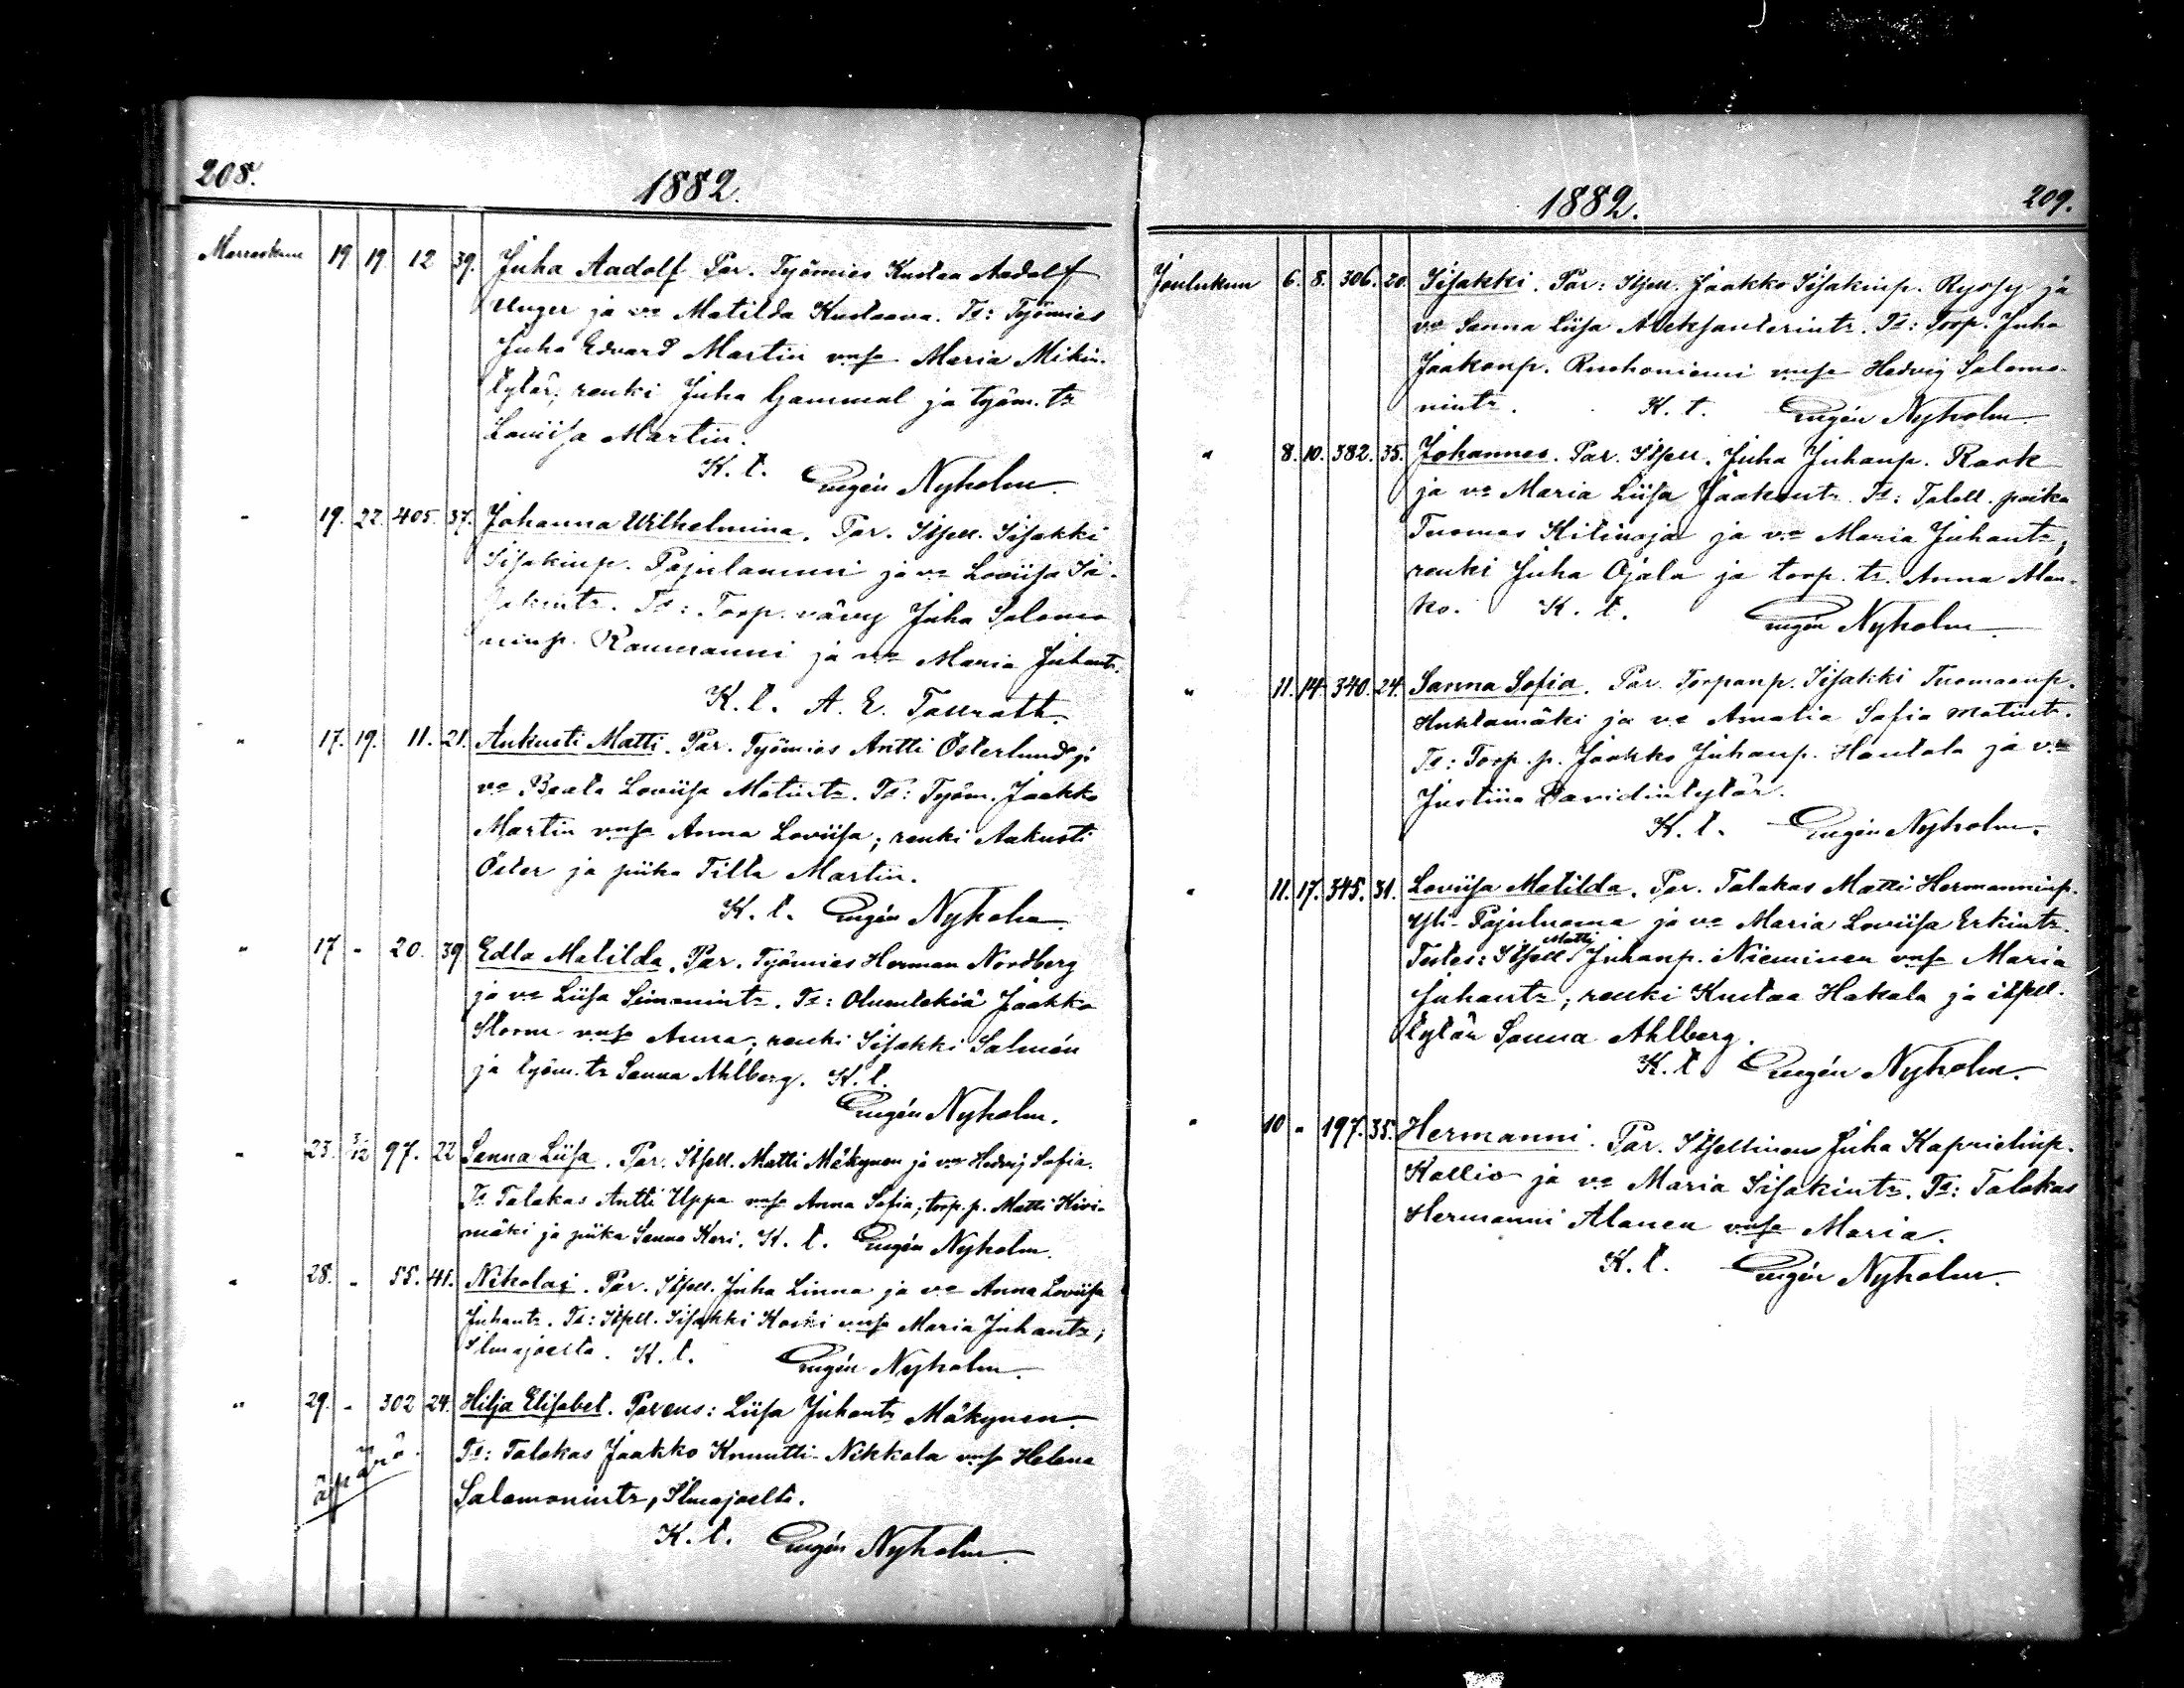 208.
1882.
Marraskuu 19 19 12 39. Juha Aadolf Par. Työmies Kustaa Aadolf
Unger ja vo Matilda Kustaava. Ts: Työmies
Juha Edvard Martin vnsa Maria Mikin-
tytär; renki Juha Gammal ja työm. tr
Loviisa Martin.
K. t. Eugén Nyholm.
" 19. 22. 405. 37. Johanna Wilhelmina. Par. Itsell. Iisakki
Iisakinp. Pajulammi ja vo Loviisa
Ts: Torp. vävy Juha Salomo
ninp. ja vo Maria Juhantr.
K. t. A. E. Taurath.
" 17. 19. 11. 21. Aukusti Matti. Par. Työmies Antti Österlund ja
vo Beata Loviisa Matintr. Ts: Työm. Jaakko
Martin vnsa Anna Loviisa; renki Aukusti
Öster ja piika Tilta Martin.
K. t. Eugén Nyholm.
" 17 " 20. 39 Edla Matilda. Par. Työmies Herman Nordberg
ja vo Liisa Simonintr. Ts: Oluentekiä Jaakko
Storm vnsa Anna; renki Iisakki Salmén
ja työm. tr Sanna Ahlberg. K. t.
Eugén Nyholm.
" 23. 3/12 97. 22 Sanna Liisa. Par. Itsell. Matti Mäkynen ja vo Hedvig Sofia.
Ts Talokas Antti Uppa vnsa Anna Sofia; torp. p. Matti Kivi-
mäki ja piika Sanna Kari. K. t. Eugén Nyholm.
" 28. " 55. 41. Nikolai. Par. Itsell. Juha Linna ja vo Anna Loviisa
Juhantr. Ts: Itsell. Iisakki Koski vnsa Maria Juhantr;
Ilmajoelta. K. t. Eugén Nyholm.
" 29. " 302 24. Hilja Elisabet. Parens: Liisa Juhantr Mäkynen.
äpärä. Ts: Talokas Jaakko Knuutti-Nikkola vnsa Helena
Salomonintr, Ilmajoelta.
K. t. Eugén Nyholm.
1882.
209.
Joulukuu 6. 8. 306. 20. Iisakki. Par: Itsell. Jaakko Iisakinp. Ryssy ja
vo Sanna Liisa Aleksanterintr. Ts: Torp. Juha
Jaakonp. Ruohoniemi vnsa Hedvig Salomo-
nintr. K. t. Eugén Nyholm.
" 8. 10. 382. 35. Johannes. Par. Itsell. Juha Juhanp. Rask
ja vo Maria Liisa Jaakontr. Ts: Taloll. poika
Tuomas Kitinoja ja vo Maria Juhantr;
renki Juha Ojala ja torp. tr. Anna Alan-
ko. K. t. Eugén Nyholm.
" 11. 14. 340. 24. Sanna Sofia. Par. Torpanp. Iisakki Tuomaanp.
Huhtamäki ja vo Amalia Sofia Matintr.
Ts: Torp. p. Jaakko Juhanp. Hautala ja vo
Justiina Davidintytär.
K. t. Eugén Nyholm.
" 11. 17. 345. 31. Loviisa Matilda. Par. Talokas Matti Hermanninp.
Yli-Pajuluoma ja vo Maria Loviisa Erkintr.
Testes: Itsell. Matti Juhanp. Nieminen vnsa Maria
Juhantr; renki Kustaa Hakala ja itsell.
tytär Sanna Ahlberg.
K. t. Eugén Nyholm.
" 10 " 197. 35. Hermanni. Par. Itsellinen Juha Kaprielinp.
Kallio ja vo Maria Iisakintr. Ts: Talokas
Hermanni Alanen vnsa Maria.
K. t. Eugén Nyholm.